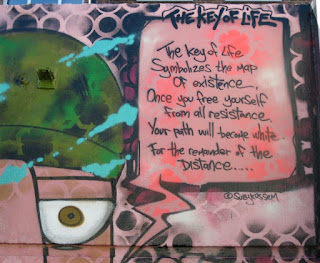 THE KEY OF LIFE
The Key of Life
Symbolizes the map
Of existence.
Once you free yourself
From all resistance.
Your path will become white.
For the remainder of the
Distance.....
@SuzyKassem